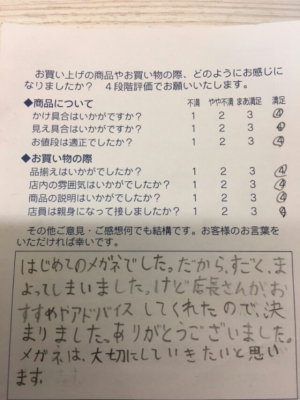 お買い上げの商品やお買い物の際、どのようにお感じに
なりましたか? 4段階評価でお願いいたします。
◆商品について 不満 やや不満 まあ満足 満足
かけ具合はいかがですか? 1 2 3 4
見え具合はいかがですか? 1 2 3 4
お値段は適正でしたか? 1 2 3 4
◆お買い物の際
品揃えはいかがでしたか? 1 2 3 4
店内の雰囲気はいかがでしたか? 1 2 3 4
商品の説明はいかがでしたか? 1 2 3 4
店員は親身になって接しましたか? 1 2 3 4
その他ご意見・ご感想何でも結構です。お客様のお言葉を
いただければ幸いです。
はじめてのメガネでした。だから、すごく、ま
よってしまいました。けど店長さんが、お
すすめやアドバイスしてくれたので、決
まりました。ありがとうございました。
メガネは、大切にしていきたいと思い
ます。